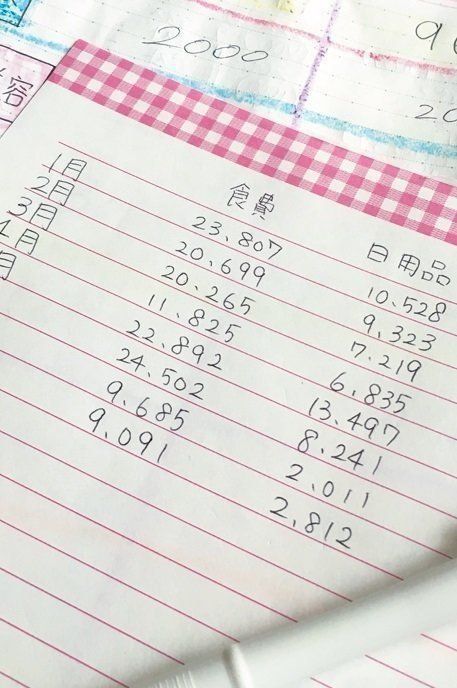 2000
容
食費 日用品
1月 23,807 10,528
2月 20,699 9,323
3月 20,265 7,219
4月 11,825 6,835
月 22,892 13,497
24,502 8,241
9,685 2,011
9,091 2,812